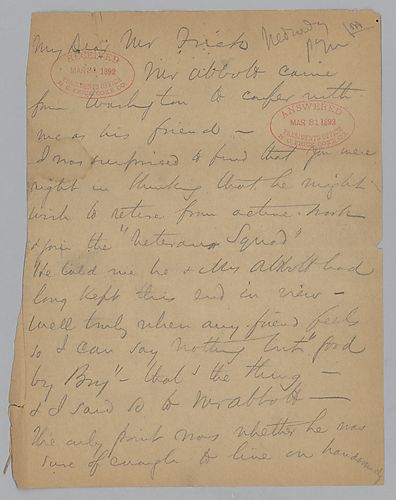 My Dear Mr Frick
Wednesday
pm
RECEIVED
MAR 31 1892
PRESIDENT'S OFFICE
H. C. FRICK COKE CO.
Mr Abbott came
from Washington to confer with
me as his friend —
ANSWERED
MAR 31 1892
PRESIDENT'S OFFICE
H. C. FRICK COKE CO.
I was surprised to find that you were
right in thinking that he might
wish to retire from active work
& join the "Veterans Squad"
He told me he & Mrs Abbott had
long kept this end in view —
Well truly when any friend feels
so I can say nothing but
by Boy" — that's the thing —
& I said so to Mr Abbott —
The only point was whether he was
sure of enough to live on handsomely